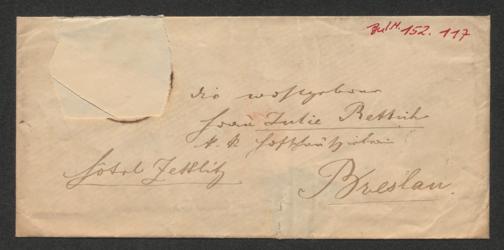 152. 117
die wohlgeborne
Frau Julie Rettich
k. k. Hofschauspielerin
Hôtel Zettlitz
Breslau.